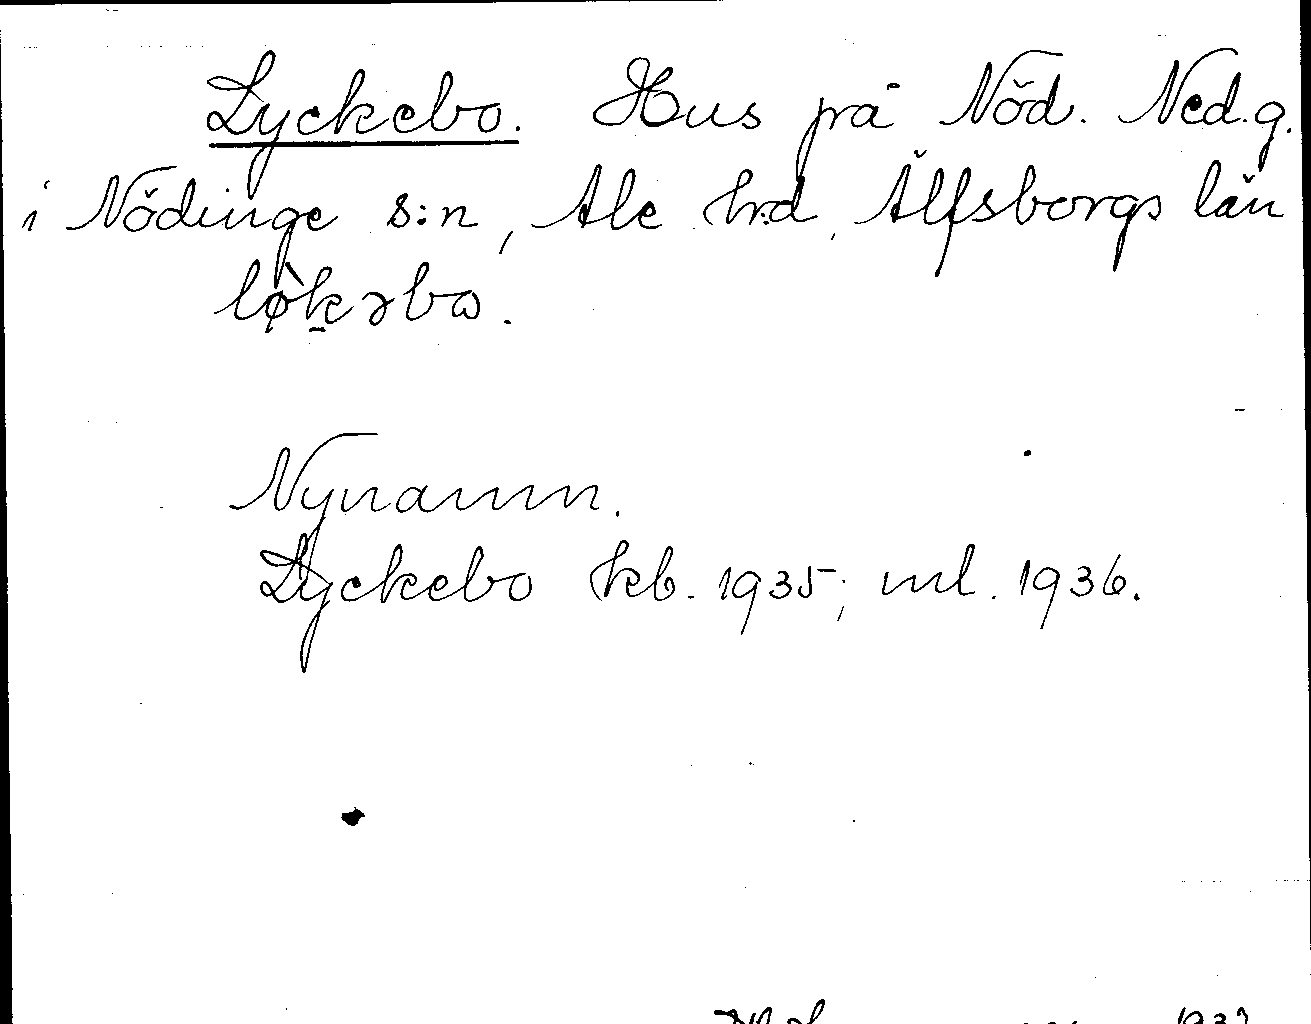 Lyckebo. Hus på Nöd. Ned.g.
i Nödinge s:n, Ale h:d, Älfsborgs län
lø̀kəbɷ.
Nynamn.
Lyckebo kb. 1935; ml. 1936.